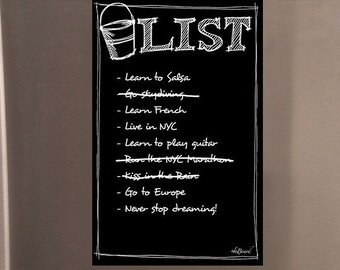 LIST
- Learn to Salsa
- Go skydiving
- Learn French
- Live in NYC
- Learn to play guitar
- Run the NYC Marathon
- Kiss in the Rain
- Go to Europe
- Never stop dreaming!